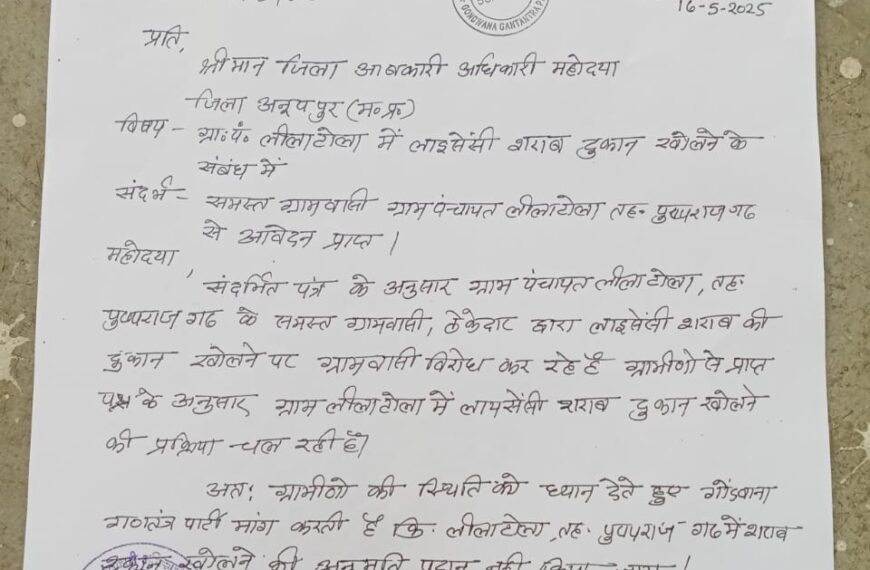 GONDWANA GANTANTRA P
16-5-2025
प्रति,
श्रीमान जिला आबकारी अधिकारी महोदया
जिला अनूपपुर (म०प्र०)
विषय - ग्रा०पं० लीलाटोला में लाइसेंसी शराब दुकान खोलने के
संबंध में
संदर्भ - समस्त ग्रामवासी ग्राम पंचायत लीलाटोला तह० पुष्पराजगढ
से आवेदन प्राप्त।
महोदया,
संदर्भित पत्र के अनुसार ग्राम पंचायत लीलाटोला, तह०
पुष्पराजगढ के समस्त ग्रामवासी, ठेकेदार द्वारा लाइसेंसी शराब की
दुकान खोलने पर ग्रामवासी विरोध कर रहे है ग्रामीणो से प्राप्त
के अनुसार ग्राम लीलाटोला में लायसेंसी शराब दुकान खोलने
की प्रक्रिया चल रही है।
अतः ग्रामीणो की स्थिति को ध्यान देते हुए गोंडवाना
गणतंत्र पार्टी मांग करती है कि लीलाटोला, तह० पुष्पराजगढ में शराब
दुकान खोलने की अनुमति प्रदान नही